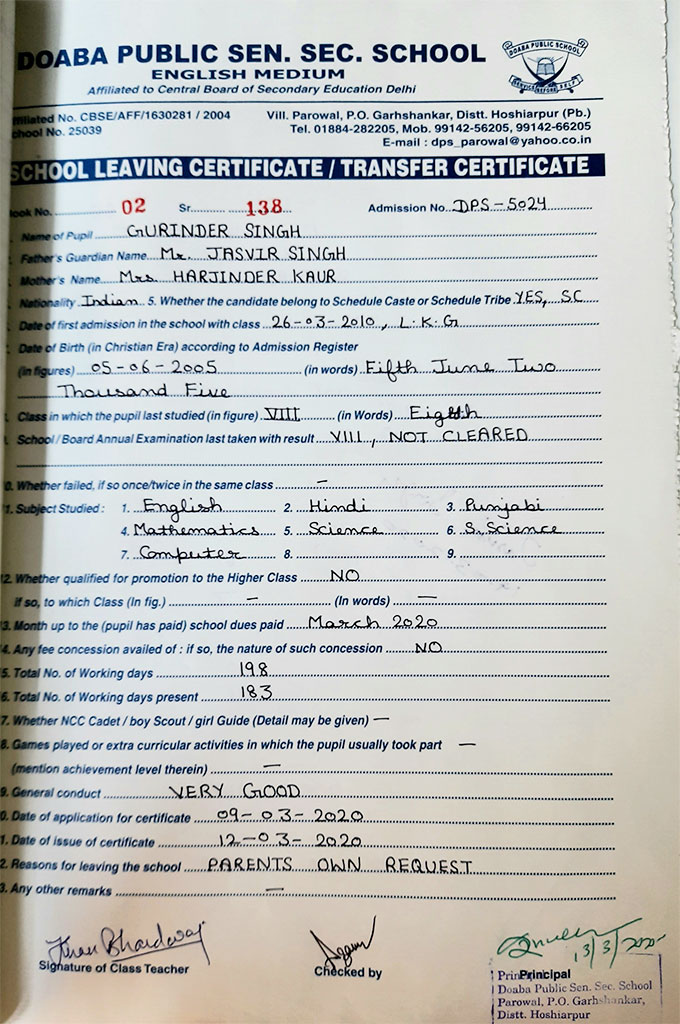 DOABA PUBLIC SEN. SEC. SCHOOL
ENGLISH MEDIUM
Affiliated to Central Board of Secondary Education Delhi
DOABA PUBLIC SCHOOL
SERVICE BEFORE SELF
filiated No. CBSE/AFF/1630281 / 2004 Vill. Parowal, P.O. Garhshankar, Distt. Hoshiarpur (Pb.)
chool No. 25039 Tel. 01884-282205, Mob. 99142-56205, 99142-66205
E-mail : dps_parowal@yahoo.co.in
SCHOOL LEAVING CERTIFICATE / TRANSFER CERTIFICATE
ook No. 02 Sr. 138 Admission No. DPS-5024
Name of Pupil GURINDER SINGH
Father's Guardian Name Mr. JASVIR SINGH
Mother's Name Mrs. HARJINDER KAUR
Nationality Indian 5. Whether the candidate belong to Schedule Caste or Schedule Tribe YES, SC
Date of first admission in the school with class 26-03-2010, L.K.G
Date of Birth (in Christian Era) according to Admission Register
(in figures) 05-06-2005 (in words) Fifth June Two
Thousand Five
Class in which the pupil last studied (in figure) VIII (in Words) Eighth
School / Board Annual Examination last taken with result VIII, NOT CLEARED
0. Whether failed, if so once/twice in the same class –
1. Subject Studied : 1. English 2. Hindi 3. Punjabi
4. Mathematics 5. Science 6. S. Science
7. Computer 8. 9.
2. Whether qualified for promotion to the Higher Class NO
if so, to which Class (In fig.) – (In words) –
3. Month up to the (pupil has paid) school dues paid March 2020
4. Any fee concession availed of : if so, the nature of such concession NO
5. Total No. of Working days 198
6. Total No. of Working days present 183
7. Whether NCC Cadet / boy Scout / girl Guide (Detail may be given) –
8. Games played or extra curricular activities in which the pupil usually took part –
(mention achievement level therein) –
9. General conduct VERY GOOD
0. Date of application for certificate 09-03-2020
1. Date of issue of certificate 12-03-2020
2. Reasons for leaving the school PARENTS OWN REQUEST
3. Any other remarks –
Bhardwaj
13/3/2020
Signature of Class Teacher Checked by Principal
Doaba Public Sen. Sec. School
Parowal, P.O. Garhshankar,
Distt. Hoshiarpur